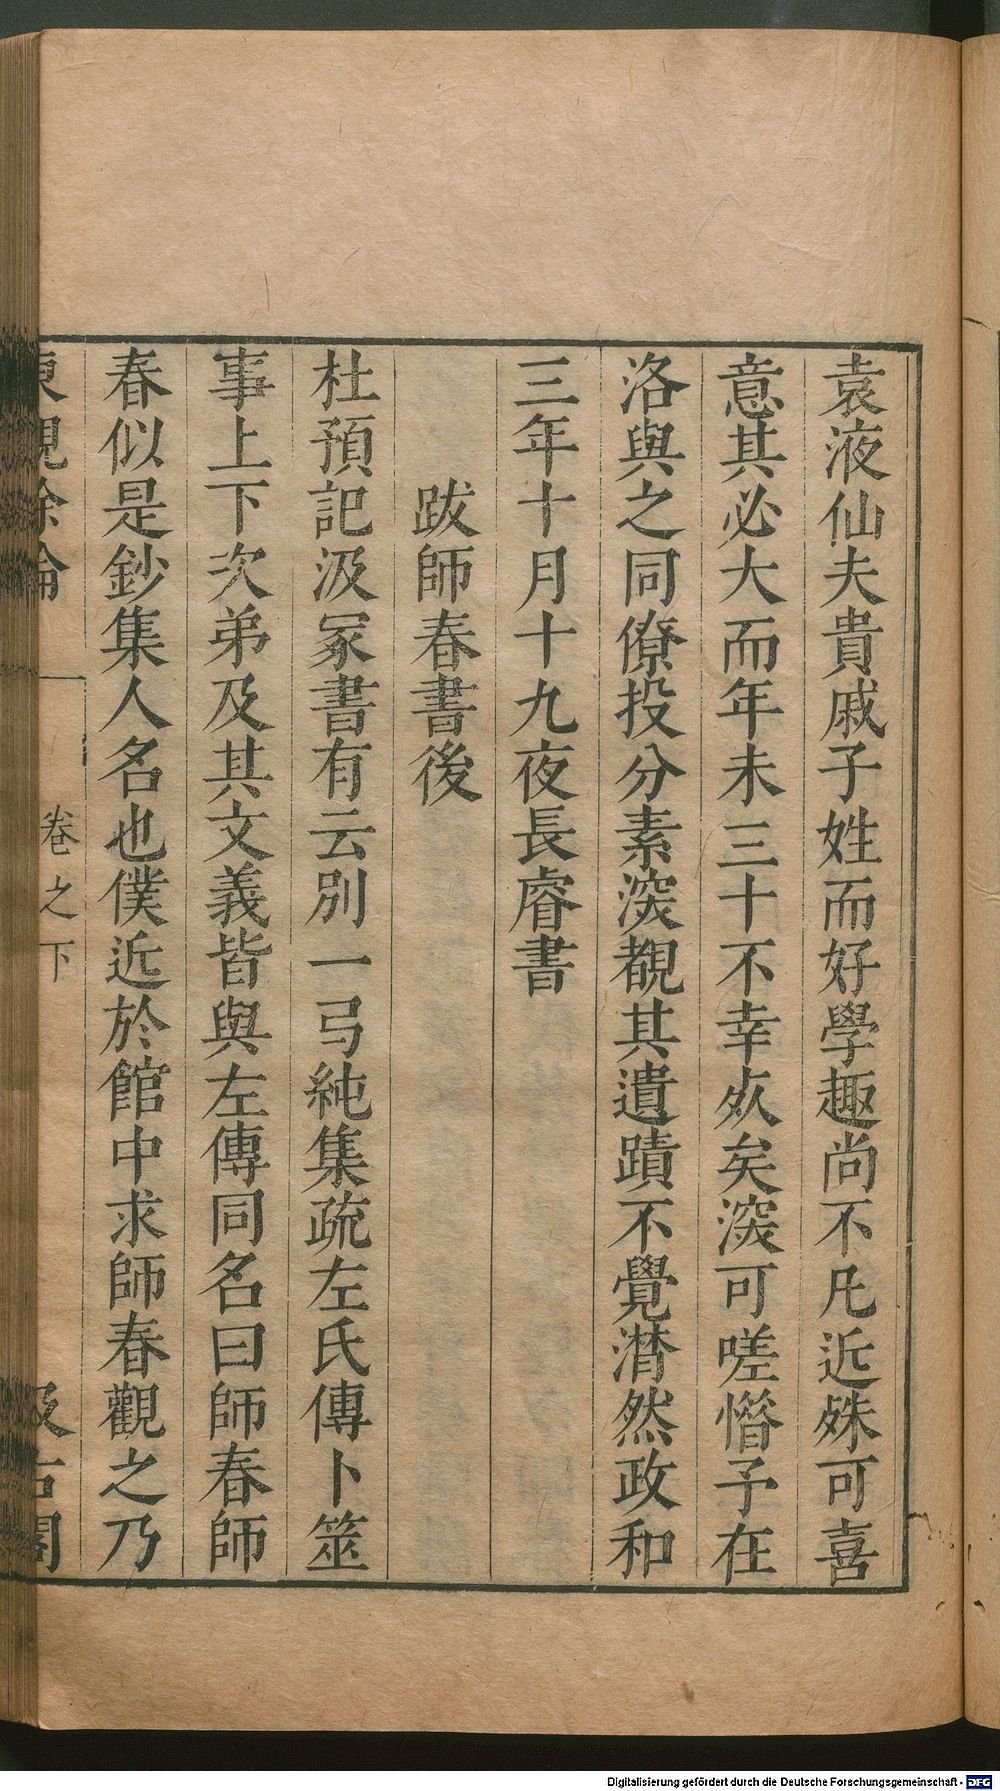 袁液仙夫貴戚子姓而好學趣尚不凡近殊可喜
意其必大而年未三十不幸夭矣深可嗟惜予在
洛與之同僚投分素深覩其遺蹟不覺潸然政和
三年十月十九夜長睿書
跋師春書後
杜預記汲冢書有云別一弓純集疏左氏傳卜筮
事上下次弟及其文義皆與左傳同名曰師春師
春似是鈔集人名也僕近於館中求師春觀之乃
東觀餘論
卷之下
汲古閣
Digitalisierung gefördert durch die Deutsche Forschungsgemeinschaft - DFG